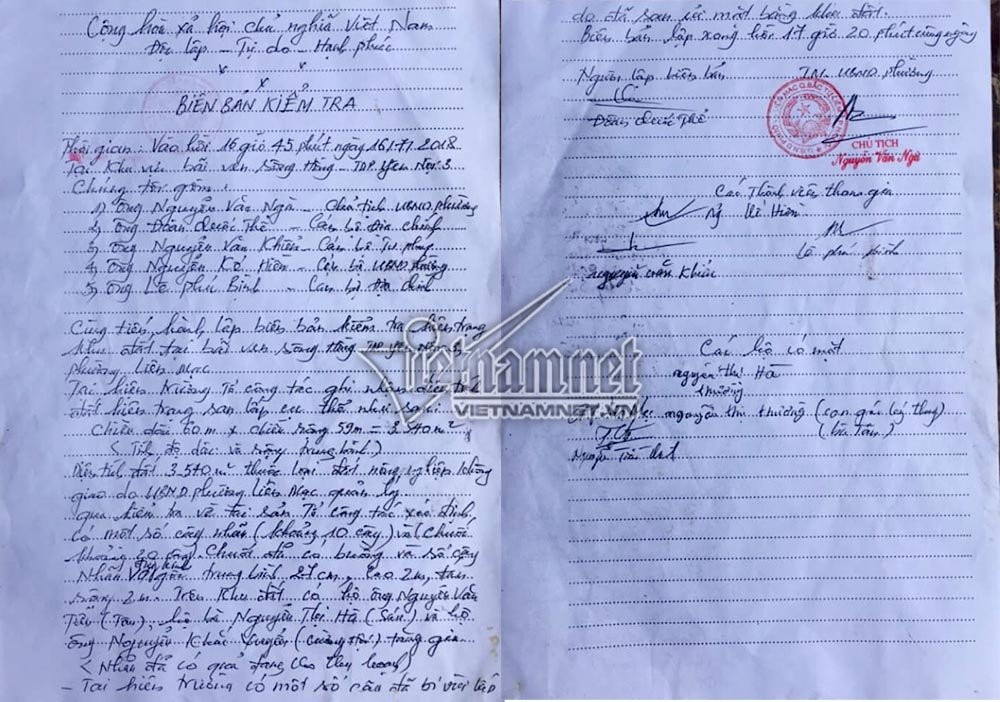 Cộng hòa xã hội chủ nghĩa Việt Nam
Độc lập - Tự do - Hạnh phúc
BIÊN BẢN KIỂM TRA
Thời gian. Vào hồi 16 giờ 45 phút ngày 16/7/2018
Tại Khu vực bãi ven sông Hồng - TDP Yên Nội 3
Chúng tôi gồm:
1) Ông Nguyễn Văn Ngà - Chủ tịch UBND phường
2) Ông Đoàn Quốc Thể - Cán bộ địa chính
3) Ông Nguyễn Văn Khiển - Cán bộ Tư pháp
4) Ông Nguyễn Hiền - Cán bộ UBND phường
5) Ông Lê Phú Bình - Cán bộ địa chính
Cùng tiến hành lập biên bản kiểm tra hiện trạng
khu đất tại bãi ven sông Hồng TDP Yên Nội 3
phường Liên Mạc
Tại hiện trường Tổ công tác ghi nhận diện tích
đất hiện trạng san lấp cụ thể như sau:
Chiều dài 60 m x chiều rộng 59m = 3.540m²
trung bình)
Diện tích đất 3.540m² thuộc loại đất nông nghiệp không
giao do UBND phường Liên Mạc quản lý
qua kiểm tra về tài sản Tổ công tác xác định
có một số cây nhãn (khoảng 10 cây) và (chuối
khoảng 20 cây). Chuối đã có buồng và số cây
Nhãn đường kính gốc trung bình 27cm, cao 2m, tán
rộng 2m. Trên khu đất có hộ ông Nguyễn Văn
hộ bà Nguyễn Thị Hà (Sán) và hộ
ông Nguyễn Khắc
(Nhãn đã có quả đang thu hoạch)
- Tại hiện trường có một số cây đã bị vùi lấp
do đã san ủi mặt bằng khu đất.
Biên bản lập xong hồi 17 giờ 20 phút cùng ngày
Người lập biên bản
TM. UBND phường
Đoàn Quốc Thể
CHỦ TỊCH
Nguyễn Văn Ngà
Các Thành viên tham gia
Hiền
Lê phú Bình
nguyễn văn Khiển
Các hộ có mặt
nguyễn thị Hà
thường
nguyễn thị thường (con gái
vietnamnet
VIETNAMNET.VN